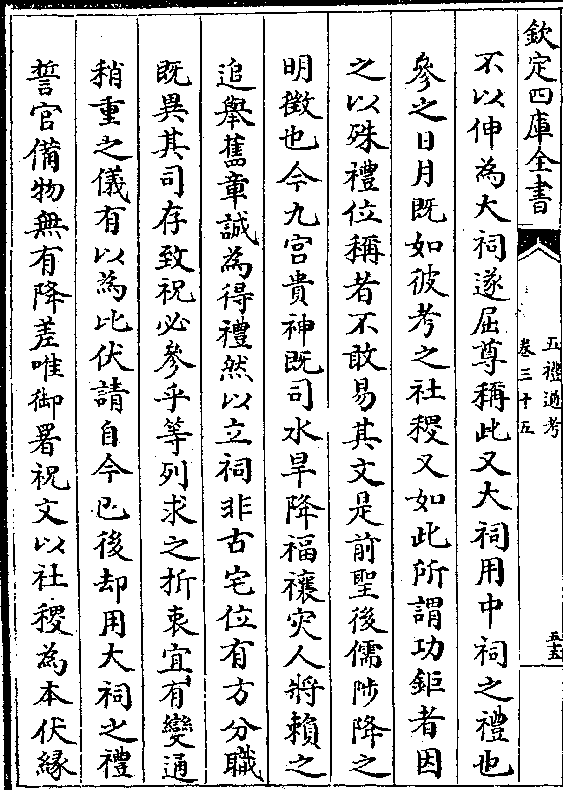 欽定四庫全書
五禮通考
卷三十五
五五
不以伸為大祠遂屈尊稱此又大祠用中祠之禮也
參之日月既如彼考之社稷又如此所謂功鉅者因
之以殊禮位稱者不敢易其文是前聖後儒陟降之
明徵也今九宫貴神既司水旱降福禳灾人將賴之
追舉舊章誠為得禮然以立祠非古宅位有方分職
既異其司存致祝必參乎等列求之折衷宜有變通
稍重之儀有以為比伏請自今已後却用大祠之禮
誓官備物無有降差唯御署祝文以社稷為本伏縁